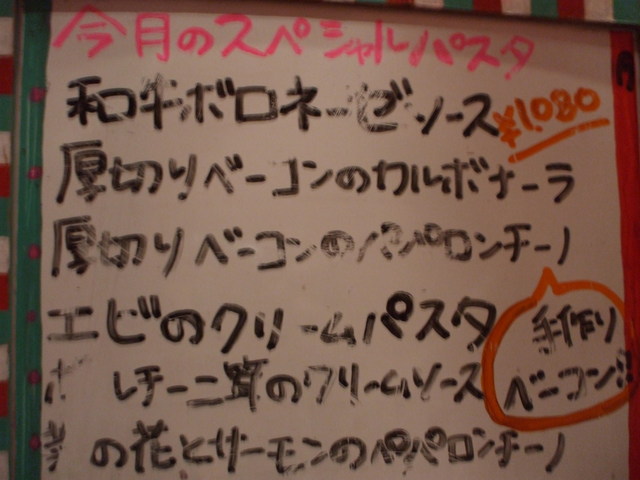 今月のスペシャルパスタ
和牛ボロネーゼソース ¥1,080
厚切りベーコンのカルボナーラ
厚切りベーコンのパパロンチーノ
エビのクリームパスタ
手作り
ベーコン!!
レチーニ茸のクリームソース
の花とサーモンのパパロンチーノ